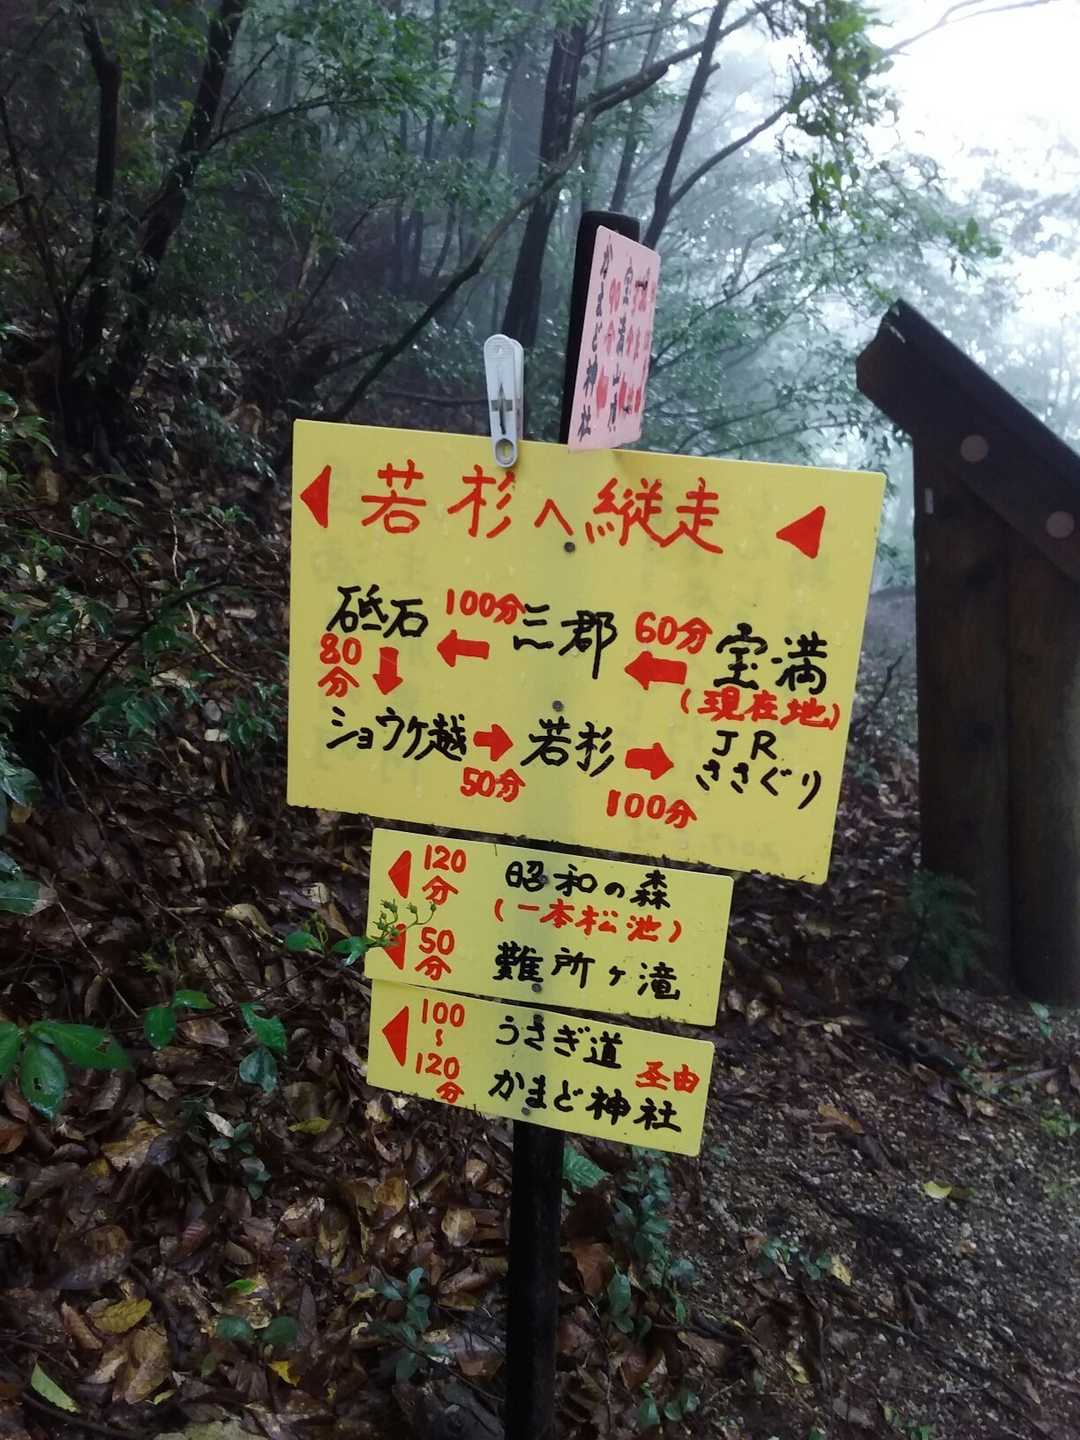 かまど神社
宝満山頂
若杉へ縦走
砥石 100分 三郡 60分 宝満
80分 (現在地)
ショウケ越 若杉 JR
ささぐり
50分 100分
120分 昭和の森
(一本松池)
50分 難所ヶ滝
100 うさぎ道
～ 圣由
120分 かまど神社